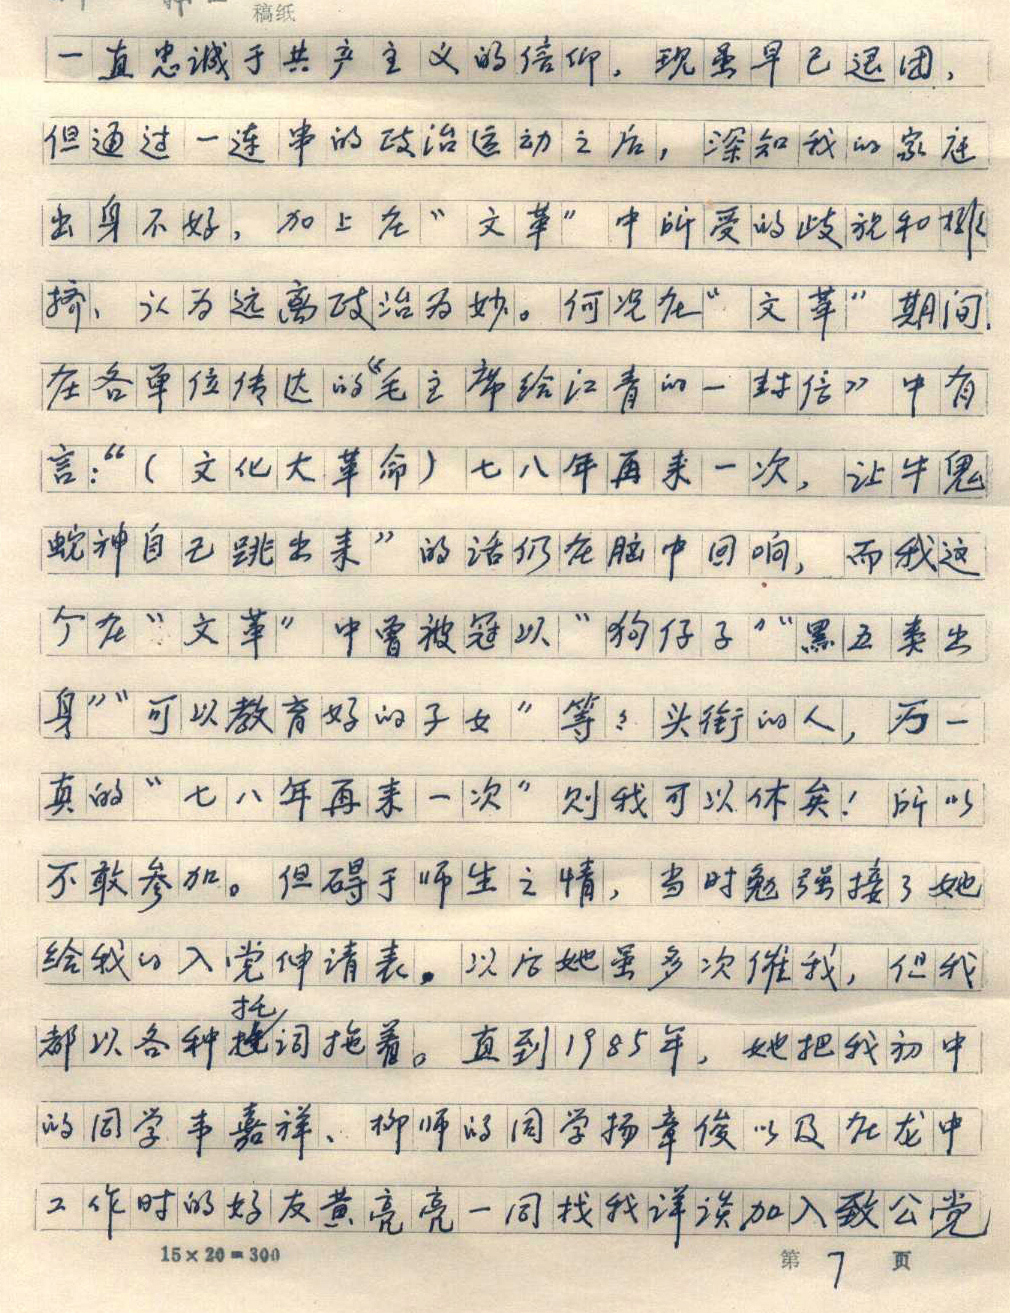 稿纸
一直忠诚于共产主义的信仰，现虽早已退团，
但通过一连串的政治运动之后，深知我的家庭
出身不好，加上在“文革”中所受的歧视和排
挤、认为远离政治为妙。何况在“文革”期间，
在各单位传达的《毛主席给江青的一封信》中有
言：“（文化大革命）七八年再来一次，让牛鬼
蛇神自己跳出来”的话仍在脑中回响，而我这
个在“文革”中曾被冠以“狗仔子”“黑五类出
身”“可以教育好的子女”等等头衔的人，万一
真的“七八年再来一次”则我可以休矣！所以
不敢参加。但碍于师生之情，当时勉强接了她
给我的入党伸请表。以后她虽多次催我，但我
都以各种托词拖着。直到1985年，她把我初中
的同学韦嘉祥、柳师的同学扬章俊以及在龙中
工作时的好友黄亮亮一同找我详谈加入致公党
15×20=300
第7页